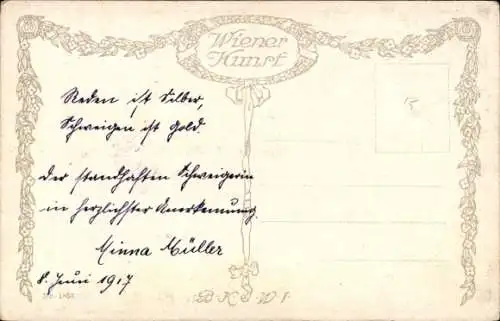 Wiener
Kunst
Reden ist Silber,
Schweigen ist Gold.
Der standhaften Schweigerin
in herzlichster Anerkennung.
Minna Müller
8. Juni 1917
B.K.W.I.